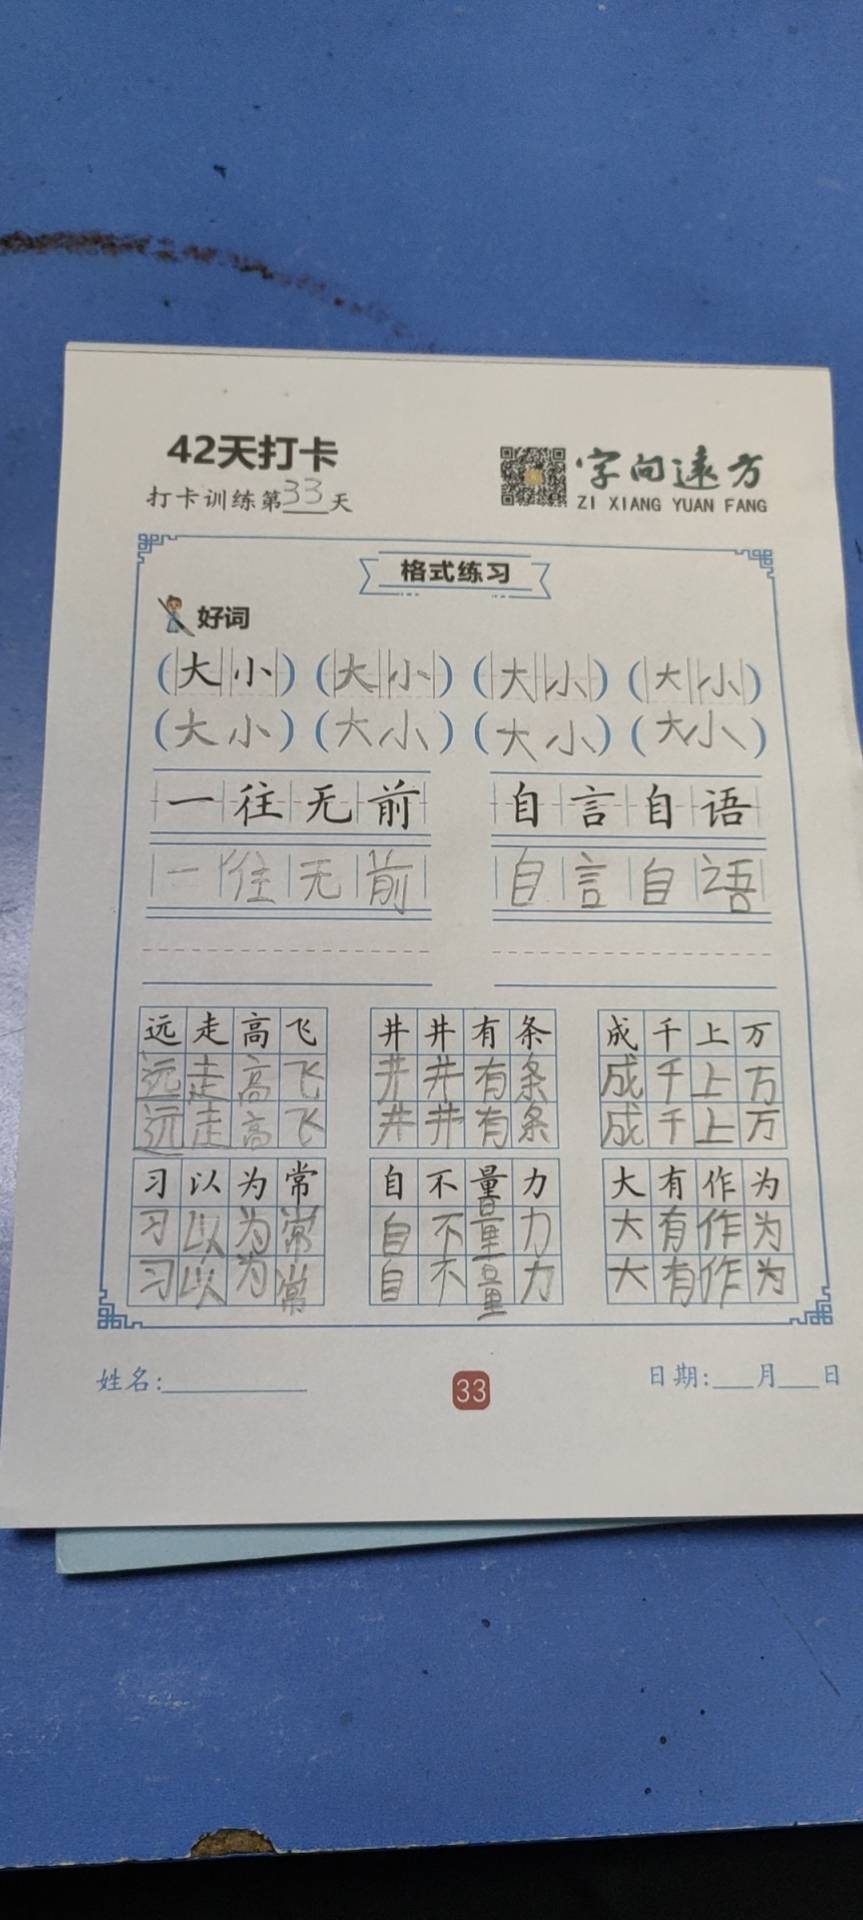 42天打卡
打卡训练第33天
字向远方
ZI XIANG YUAN FANG
格式练习
好词
(大小) (大小) (大小) (大小)
(大小) (大小) (大小) (大小)
一往无前 自言自语
一往无前 自言自语
远走高飞 井井有条 成千上万
远走高飞 井井有条 成千上万
远走高飞 井井有条 成千上万
习以为常 自不量力 大有作为
习以为常 自不量力 大有作为
习以为常 自不量力 大有作为
姓名:______ 33 日期:__月__日